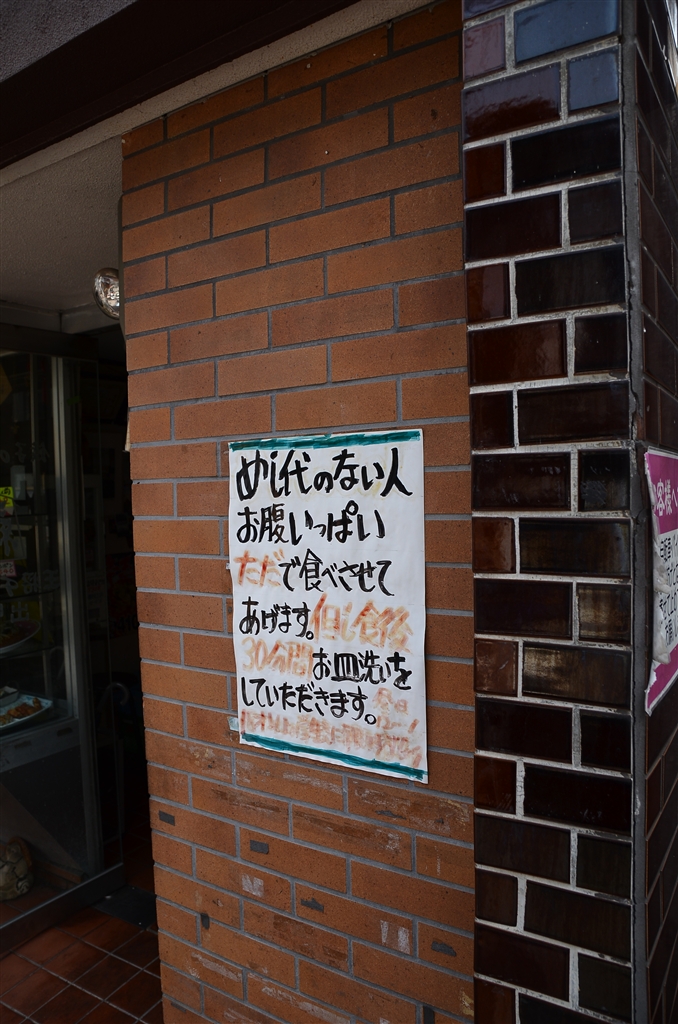 めし代のない人
お腹いっぱい
ただで食べさせて
あげます。但し食後
30分間お皿洗いを
していただきます。
客様へ